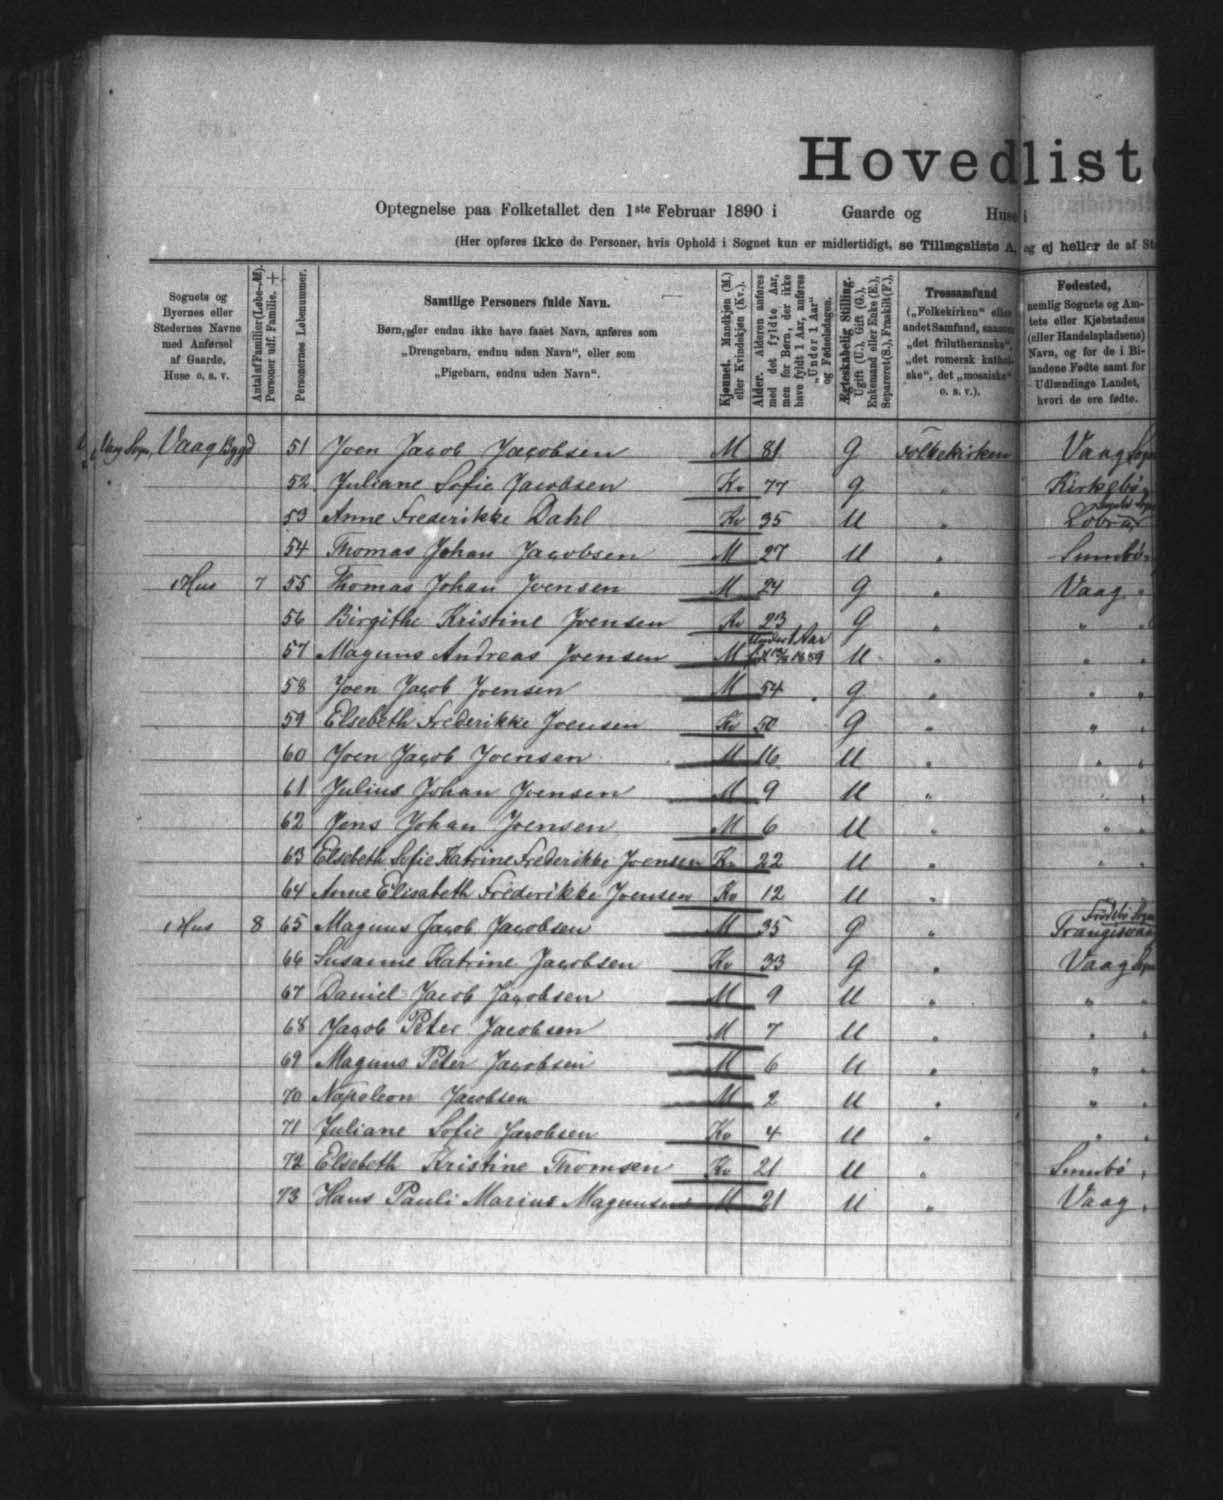 Hovedliste
Optegnelse paa Folketallet den 1ste Februar 1890 i Gaarde og Huse i
(Her opføres ikke de Personer, hvis Ophold i Sognet kun er midlertidigt, se Tillægsliste A, og ej heller de af
Sognets og Byernes eller Stedernes Navne med Anførsel af Gaarde, Huse o. s. v.
Antal af Familier (Løbe-№). Personer udf. Familie. +
Personernes Løbenummer.
Samtlige Personers fulde Navn.
Børn, der endnu ikke have faaet Navn, anføres som
„Drengebarn, endnu uden Navn", eller som
„Pigebarn, endnu uden Navn".
Kjønnet. Mandkjøn (M.) eller Kvindekjøn (Kv.).
Alder. Alderen anføres med det fyldte Aar, men for Børn, der ikke have fyldt 1 Aar, anføres „Under 1 Aar" og Fødselsdagen.
Ægteskabelig Stilling. Ugift (U.), Gift (G.), Enkemand eller Enke (E.), Separeret (S.), Fraskilt (F.).
Trossamfund („Folkekirken" eller andet Samfund, saasom „det frilutheranske", „det romersk katholske", det „mosaiske" o. s. v.).
Fødested, nemlig Sognets og Amtets eller Kjøbstadens (eller Handelspladsens) Navn, og for de i Bilandene Fødte samt for Udlændinge Landet, hvori de ere fødte.
Vaag Sogn, Vaag Bygd 51 Joen Jacob Jacobsen M 81 G Folkekirken Vaag Sogn
52 Juliane Sofie Jacobsen Kv 77 G " Kirkebø
53 Anne Frederikke Dahl Kv 35 U "
54 Thomas Johan Jacobsen M 27 U " Sumbø
1 Hus 7 55 Thomas Johan Joensen M 24 G " Vaag "
56 Birgithe Kristine Joensen Kv 23 G " " "
57 Magnus Andreas Joensen M Under 1 Aar 1889 U " " "
58 Joen Jacob Joensen M 54 G " " "
59 Elsebeth Frederikke Joensen Kv 50 G " " "
60 Joen Jacob Joensen M 16 U " " "
61 Julius Johan Joensen M 9 U " " "
62 Jens Johan Joensen M 6 U " " "
63 Elsebeth Sofie Katrine Frederikke Joensen Kv 22 U " " "
64 Anne Elisabeth Frederikke Joensen Kv 12 U " " "
1 Hus 8 65 Magnus Jacob Jacobsen M 35 G " Frodebø Sogn Trangisvaag
66 Susanne Katrine Jacobsen Kv 33 G " Vaag Sogn
67 Daniel Jacob Jacobsen M 9 U " " "
68 Jacob Peter Jacobsen M 7 U " " "
69 Magnus Peter Jacobsen M 6 U " " "
70 Napoleon Jacobsen M 2 U " " "
71 Juliane Sofie Jacobsen Kv 4 U " " "
72 Elsebeth Kristine Thomsen Kv 21 U " Sumbø "
73 Hans Pauli Marius Magnussen M 21 U " Vaag "